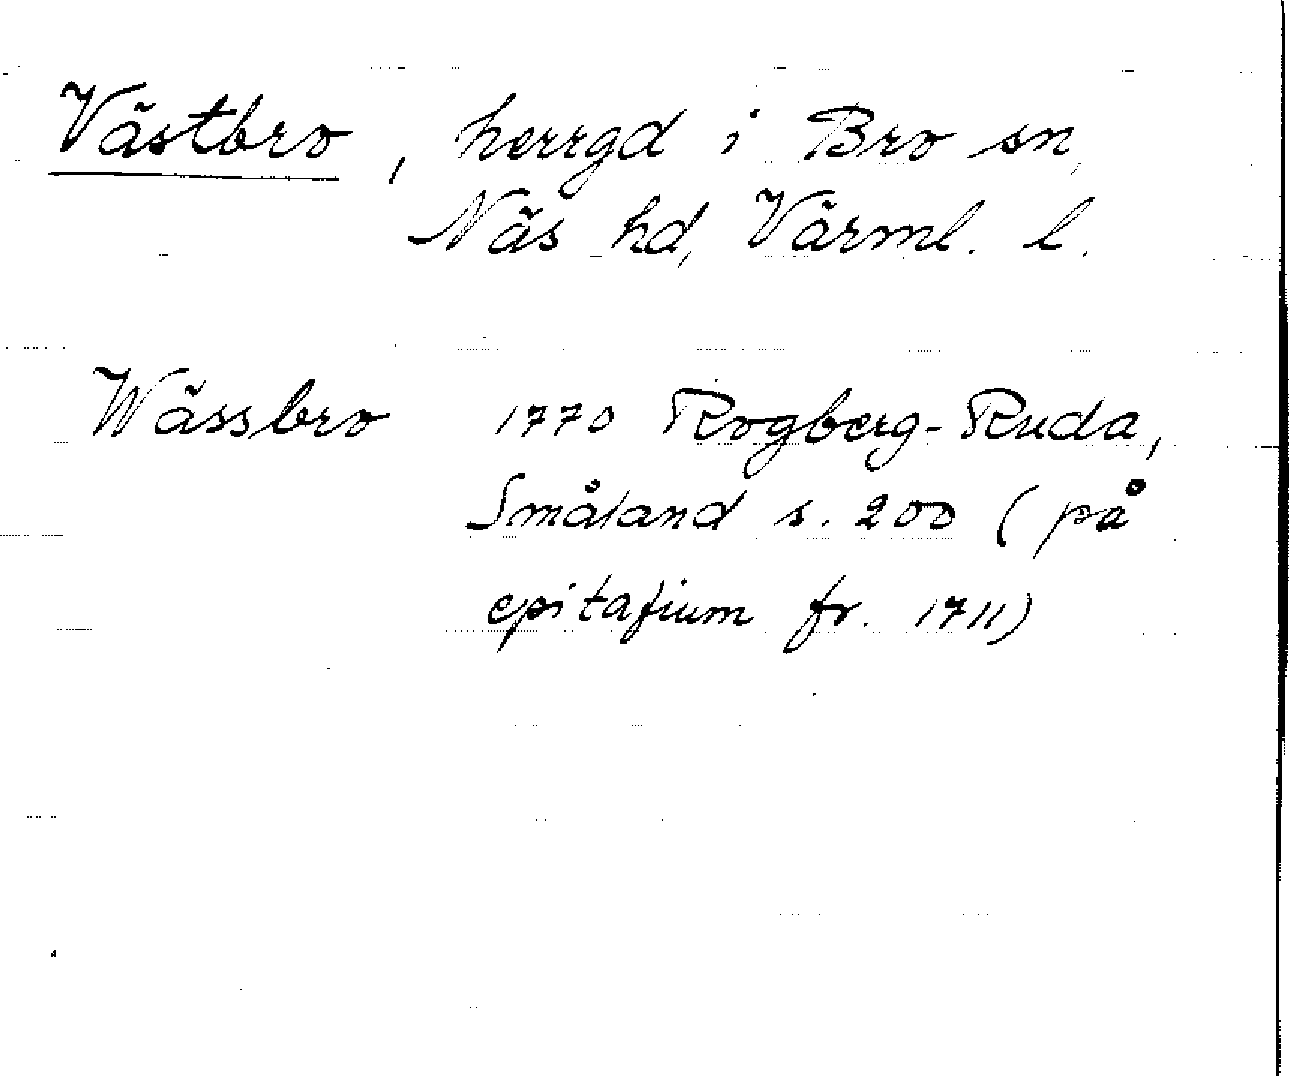 Västbro, herrgd i Bro sn,
Näs hd, Värml. l.
Wässbro 1770 Rogberg-Ruda,
Småland s. 200 (på
epitafium fr. 1711)